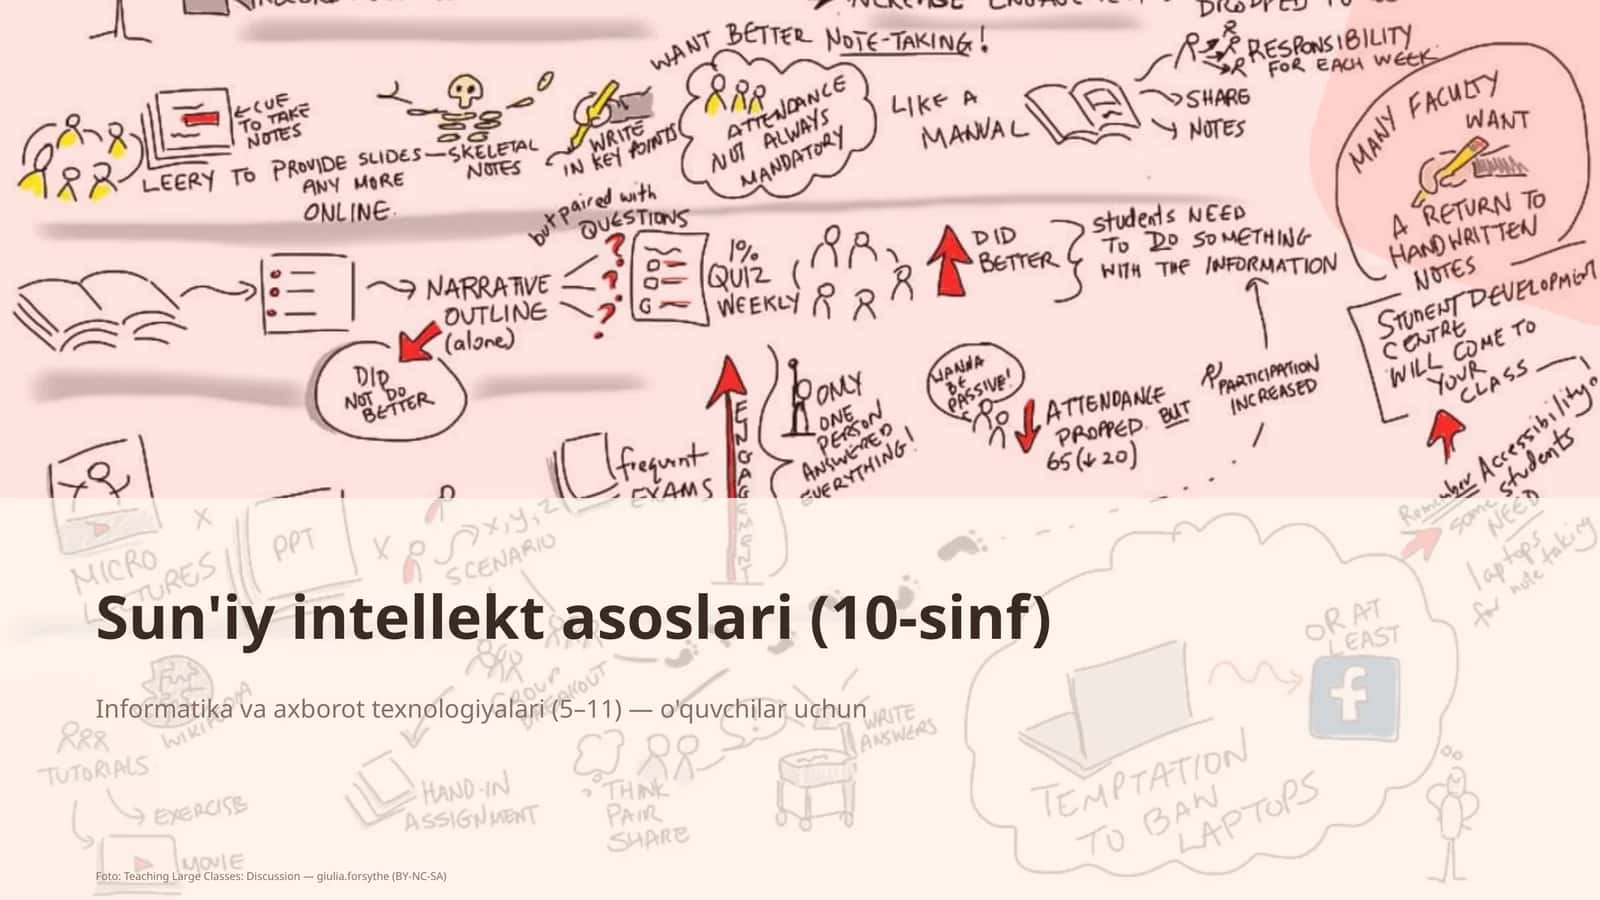 WANT BETTER NOTE-TAKING!
RESPONSIBILITY
FOR EACH WEEK
CUE
TO TAKE
NOTES
LEERY TO PROVIDE SLIDES
ANY MORE
ONLINE.
SKELETAL
NOTES
WRITE
IN KEY POINTS
ATTENDANCE
NOT ALWAYS
MANDATORY
LIKE A
MANUAL
SHARE
NOTES
MANY FACULTY
WANT
A RETURN TO
HANDWRITTEN
NOTES
NARRATIVE
OUTLINE
(alone)
but paired with
QUESTIONS
1%
QUIZ
WEEKLY
DID
BETTER
students NEED
TO DO SOMETHING
WITH THE INFORMATION
DID
NOT DO
BETTER
STUDENT DEVELOPMENT
CENTRE
WILL COME TO
YOUR
CLASS
frequent
EXAMS
ENGAGEMENT
ONLY
ONE
PERSON
ANSWERED
EVERYTHING!
WANNA
BE
PASSIVE!
ATTENDANCE
DROPPED. BUT
65 (↓ 20)
PARTICIPATION
INCREASED
Remember Accessibility
some students
NEED
laptops
for note taking
MICRO
LECTURES
X
PPT
X
x, y, z
SCENARIO
Sun'iy intellekt asoslari (10-sinf)
Informatika va axborot texnologiyalari (5–11) — o'quvchilar uchun
WIKIPEDIA
GROUP
BREAKOUT
TUTORIALS
EXERCISE
MOVIE
HAND-IN
ASSIGNMENT
THINK
PAIR
SHARE
WRITE
ANSWERS
OR AT
LEAST
f
TEMPTATION
TO BAN
LAPTOPS
Foto: Teaching Large Classes: Discussion — giulia.forsythe (BY-NC-SA)